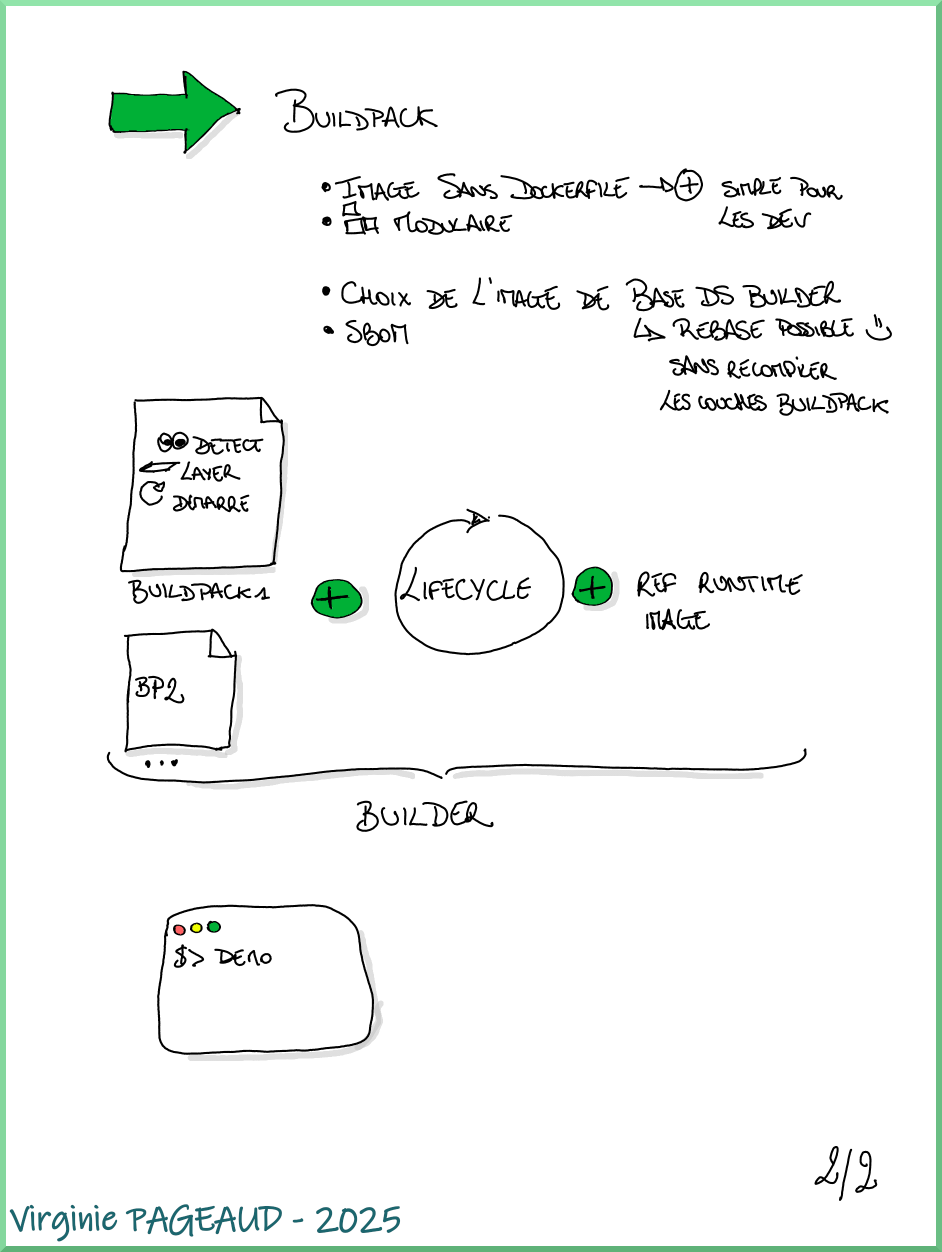 BUILDPACK
• IMAGE SANS DOCKERFILE → + SIMPLE POUR
LES DEV
• MODULAIRE
• CHOIX DE L'IMAGE DE BASE DS BUILDER
↳ REBASE POSSIBLE
SANS RECOMPILER
LES COUCHES BUILDPACK
• SBOM
DETECT
LAYER
DEMARRE
BUILDPACK 1
+
LIFECYCLE
+
REF RUNTIME
IMAGE
BP2
...
BUILDER
$> DEMO
2/2
Virginie PAGEAUD - 2025